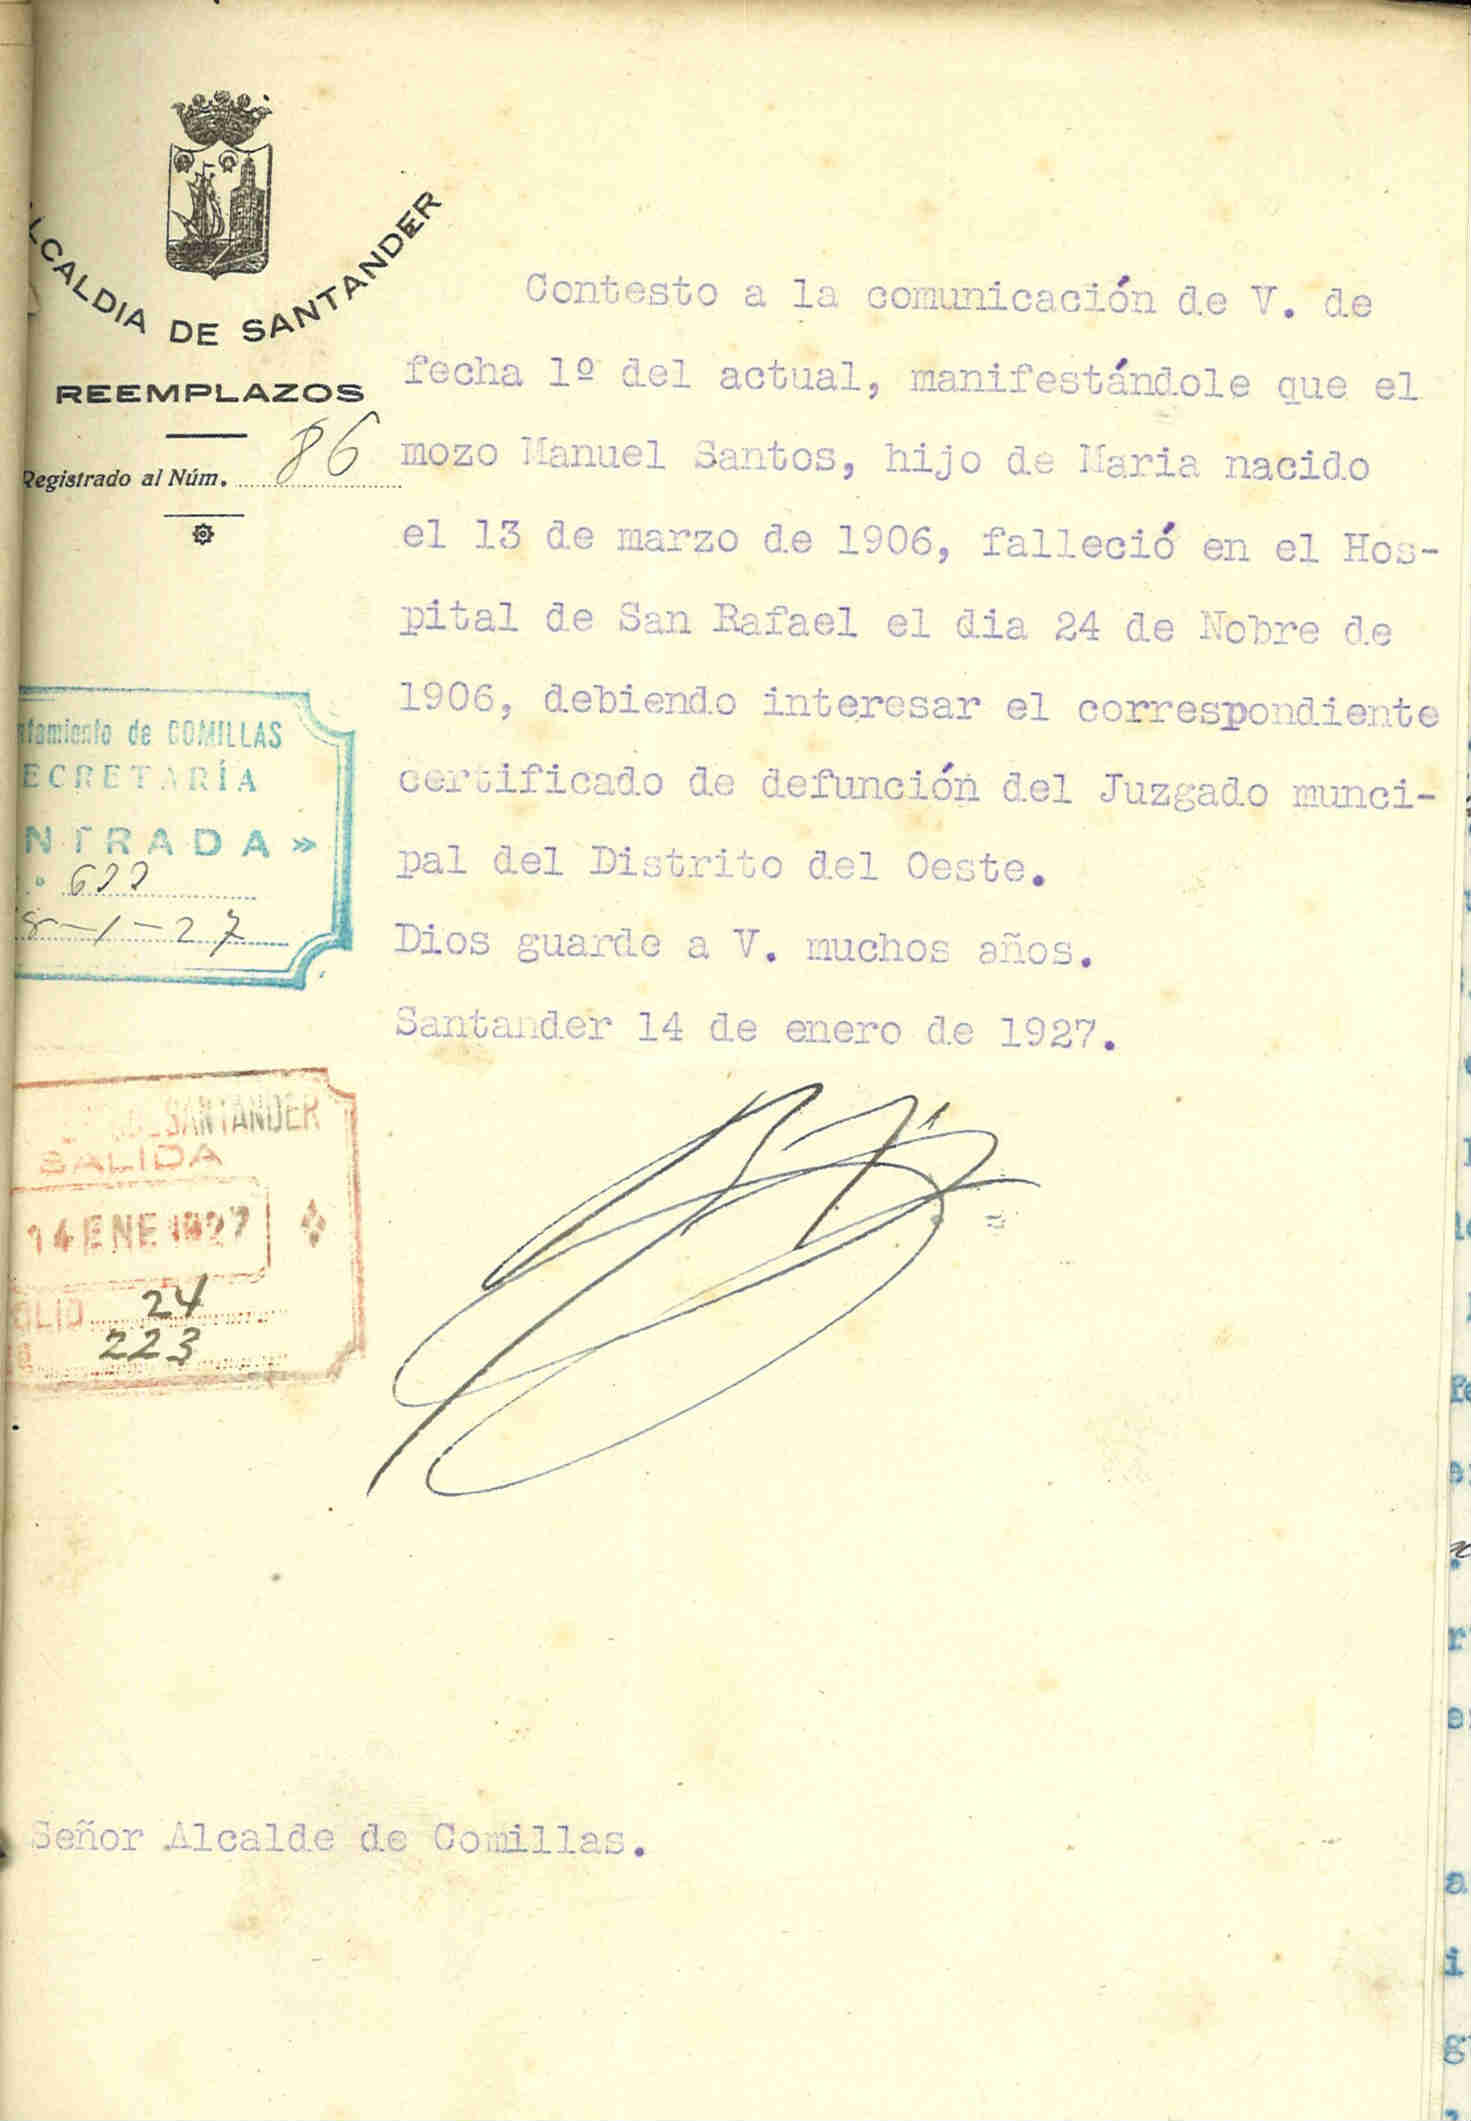 ALCALDIA DE SANTANDER
REEMPLAZOS
Registrado al Núm. 86
Contesto a la comunicación de V. de
fecha 1º del actual, manifestándole que el
mozo Manuel Santos, hijo de Maria nacido
el 13 de marzo de 1906, falleció en el Hos-
pital de San Rafael el dia 24 de Nobre de
1906, debiendo interesar el correspondiente
certificado de defunción del Juzgado munci-
pal del Distrito del Oeste.
Dios guarde a V. muchos años.
Santander 14 de enero de 1927.
ntamiento de COMILLAS
ECRETARÍA
NTRADA »
8-1-27
SANTANDER
SALIDA
14 ENE 1927
OLIO 24
223
Señor Alcalde de Comillas.